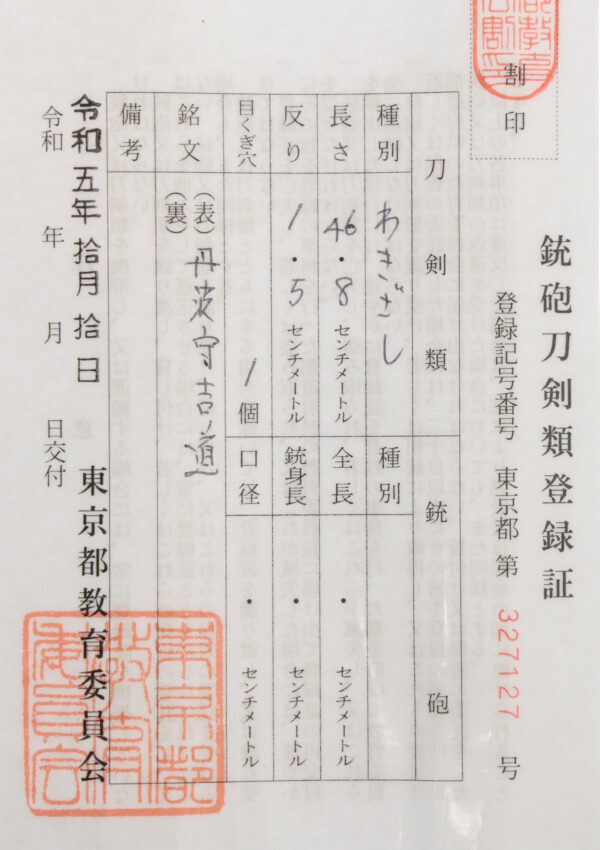 割印
銃砲刀剣類登録証
登録記号番号 東京都 第 327127 号
刀剣類
銃砲
種別 わきざし
種別
長さ 46・8 センチメートル
全長 ・ センチメートル
反り 1・5 センチメートル
銃身長 ・ センチメートル
目くぎ穴 1 個
口径 ・ センチメートル
銘文 (表) 丹波守吉道
(裏)
備考
令和五年拾月拾日
令和 年 月 日交付
東京都教育委員会
東京都
教育
委員会